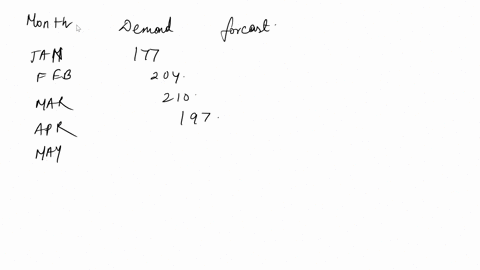 Month Demand forcast.
JAN 177
FEB 204.
MAR 210.
APR 197.
MAY